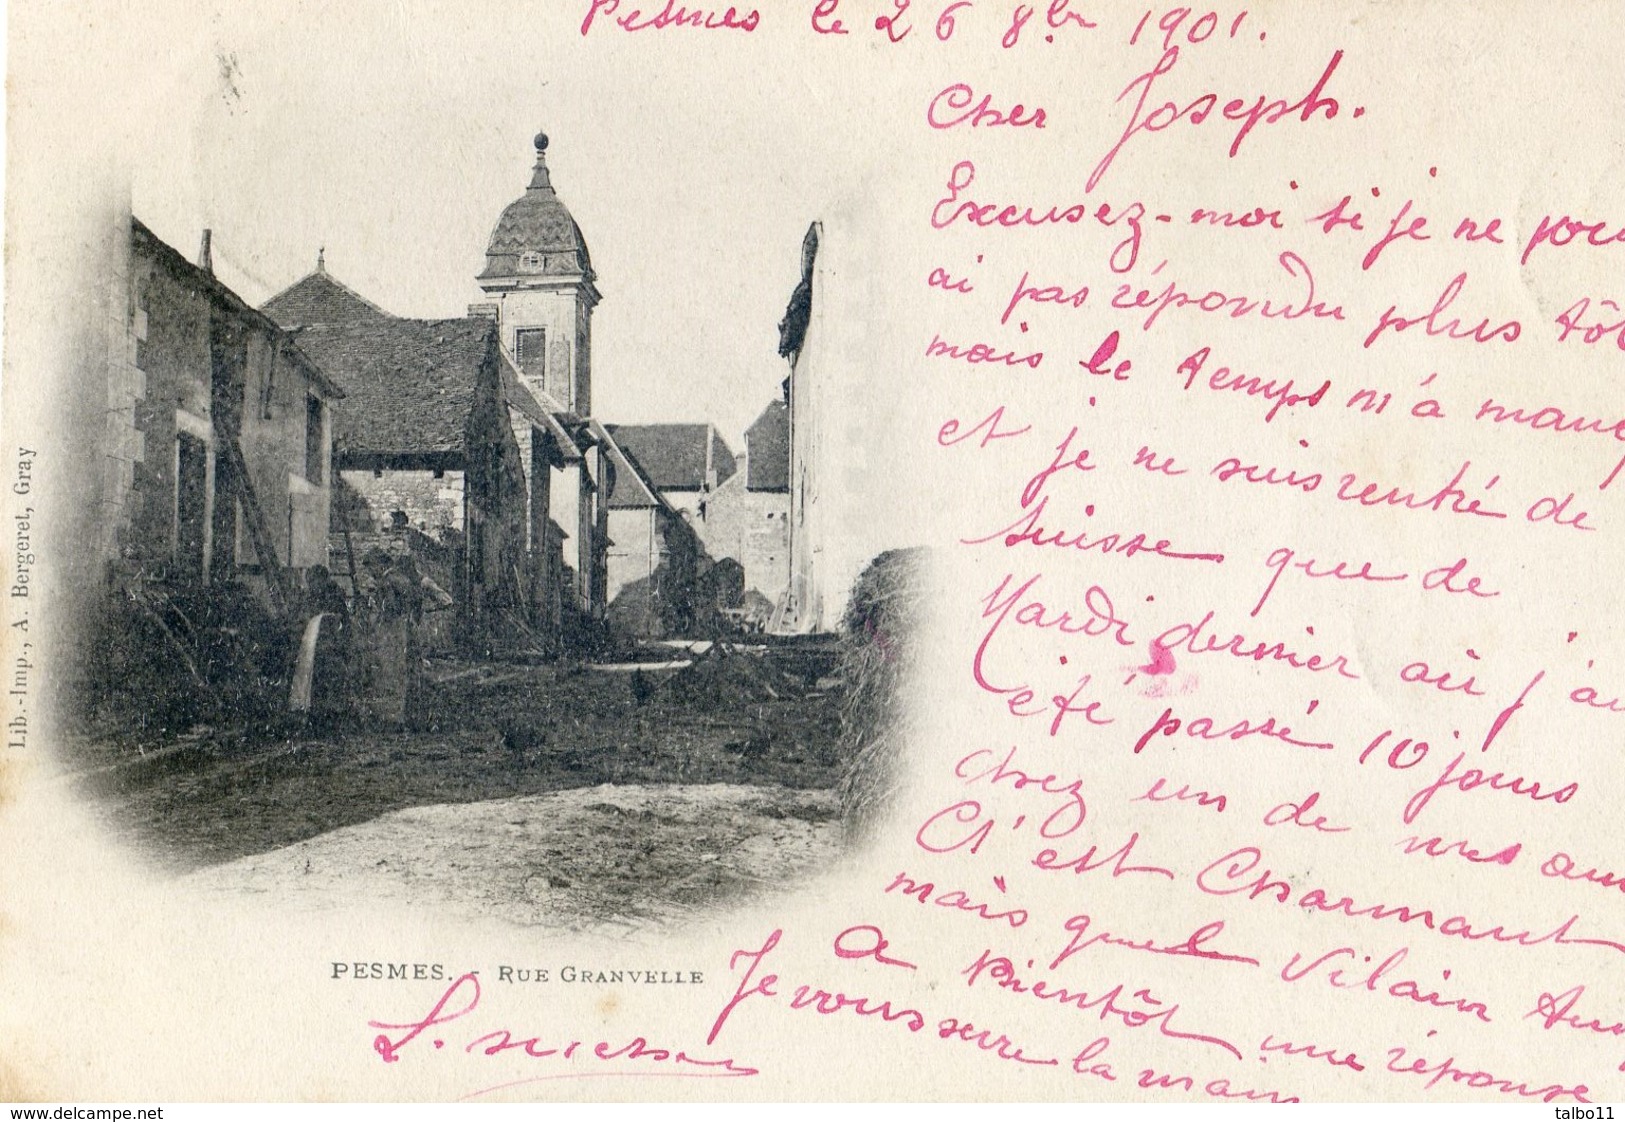 Pesmes le 26 8bre 1901.
Cher Joseph.
Excusez-moi si je ne
ai pas répondu plus tôt
mais le temps m'a
et je ne suis rentré de
Suisse que de
Mardi dernier où j'ai
été passé 10 jours
chez un de mes
C'est Charmant
mais quel Vilain
A bientôt une réponse
Je vous serre la main
L.
PESMES. - RUE GRANVELLE
Lib.-Imp., A. Bergeret, Gray
www.delcampe.net
talbo11